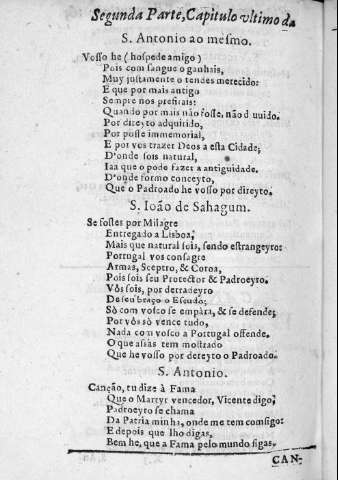 Segunda Parte, Capitulo vltimo da
S. Antonio ao mesmo.
Vosso he (hospede amigo)
Pois com sangue o ganhais,
Muy justamente o tendes merecido:
E que por mais antigo
Sempre nos prefirais:
Quando por mais não fosse, não duuido.
Por direyto adquirido,
Por posse immemorial,
E por vos trazer Deos a esta Cidade;
D'onde sois natural,
Iaa que o pode fazer a antiguidade.
D'onde formo conceyto,
Que o Padroado he vosso por direyto.
S. Ioão de Sahagum.
Se fostes por Milagre
Entregado a Lisboa,
Mais que natural sois, sendo estrangeyro:
Portugal vos consagre
Armas, Sceptro, & Coroa,
Pois sois seu Protector & Padroeyro.
Vôs sois, por derradeyro
De seu braço o Escudo;
Sò com vosco se empàra, & se defende;
Por vôs sò vence tudo,
Nada com vosco a Portugal offende.
O que assàs tem mostrado
Que he vosso por dereyto o Padroado.
S. Antonio.
Canção, tu dize à Fama
Que o Martyr vencedor, Vicente digo,
Padroeyro se chama
Da Patria minha, onde me tem comsigo:
E depois que lho digas,
Bem he, que a Fama pelo mundo sigas.
CAN-